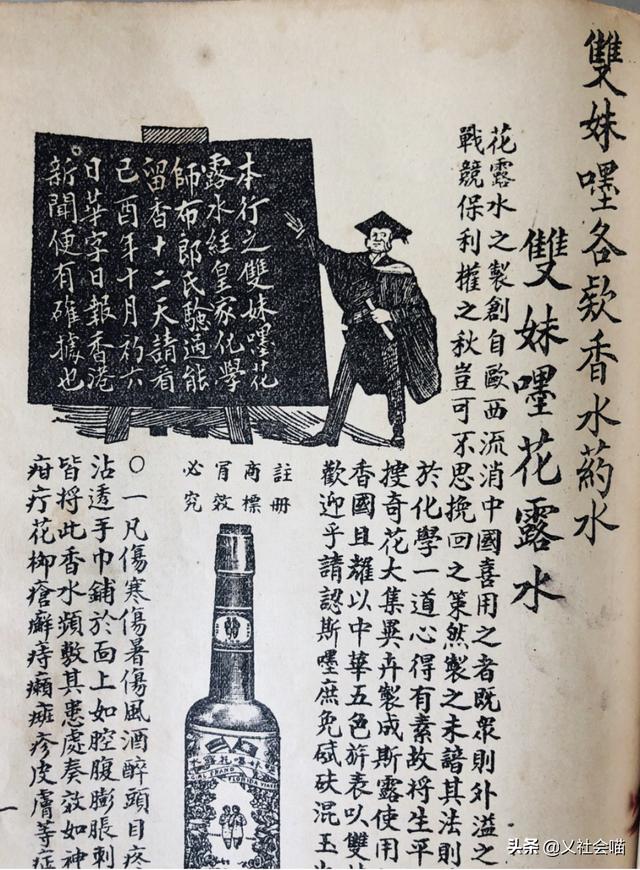 雙妹嚜各欵香水葯水
雙妹嚜花露水
花露水之製創自歐西流消中國喜用之者既衆則外溢之
戰競保利權之秋豈可不思挽回之策然製之未諳其法則
於化學一道心得有素故將生平
摟奇花大集異卉製成斯露使用
香國且耀以中華五色旂表以雙
歡迎乎請認斯嚜庶免碔砆混玉
本行之雙妹嚜花
露水經皇家化學
師布郎氏驗過能
留香十二天請看
己酉年十月初六
日華字日報香港
新聞便有確據也
註册
商標
冐效
必究
○一凡傷寒傷暑傷風酒醉頭目疼
沾透手巾鋪於面上如腔腹膨脹刺
皆將此香水頻敷其患處奏效如神
疳疔花柳瘡癬痔癩癍疹皮膚等症
FLORIDA
头条 @乂社会喵